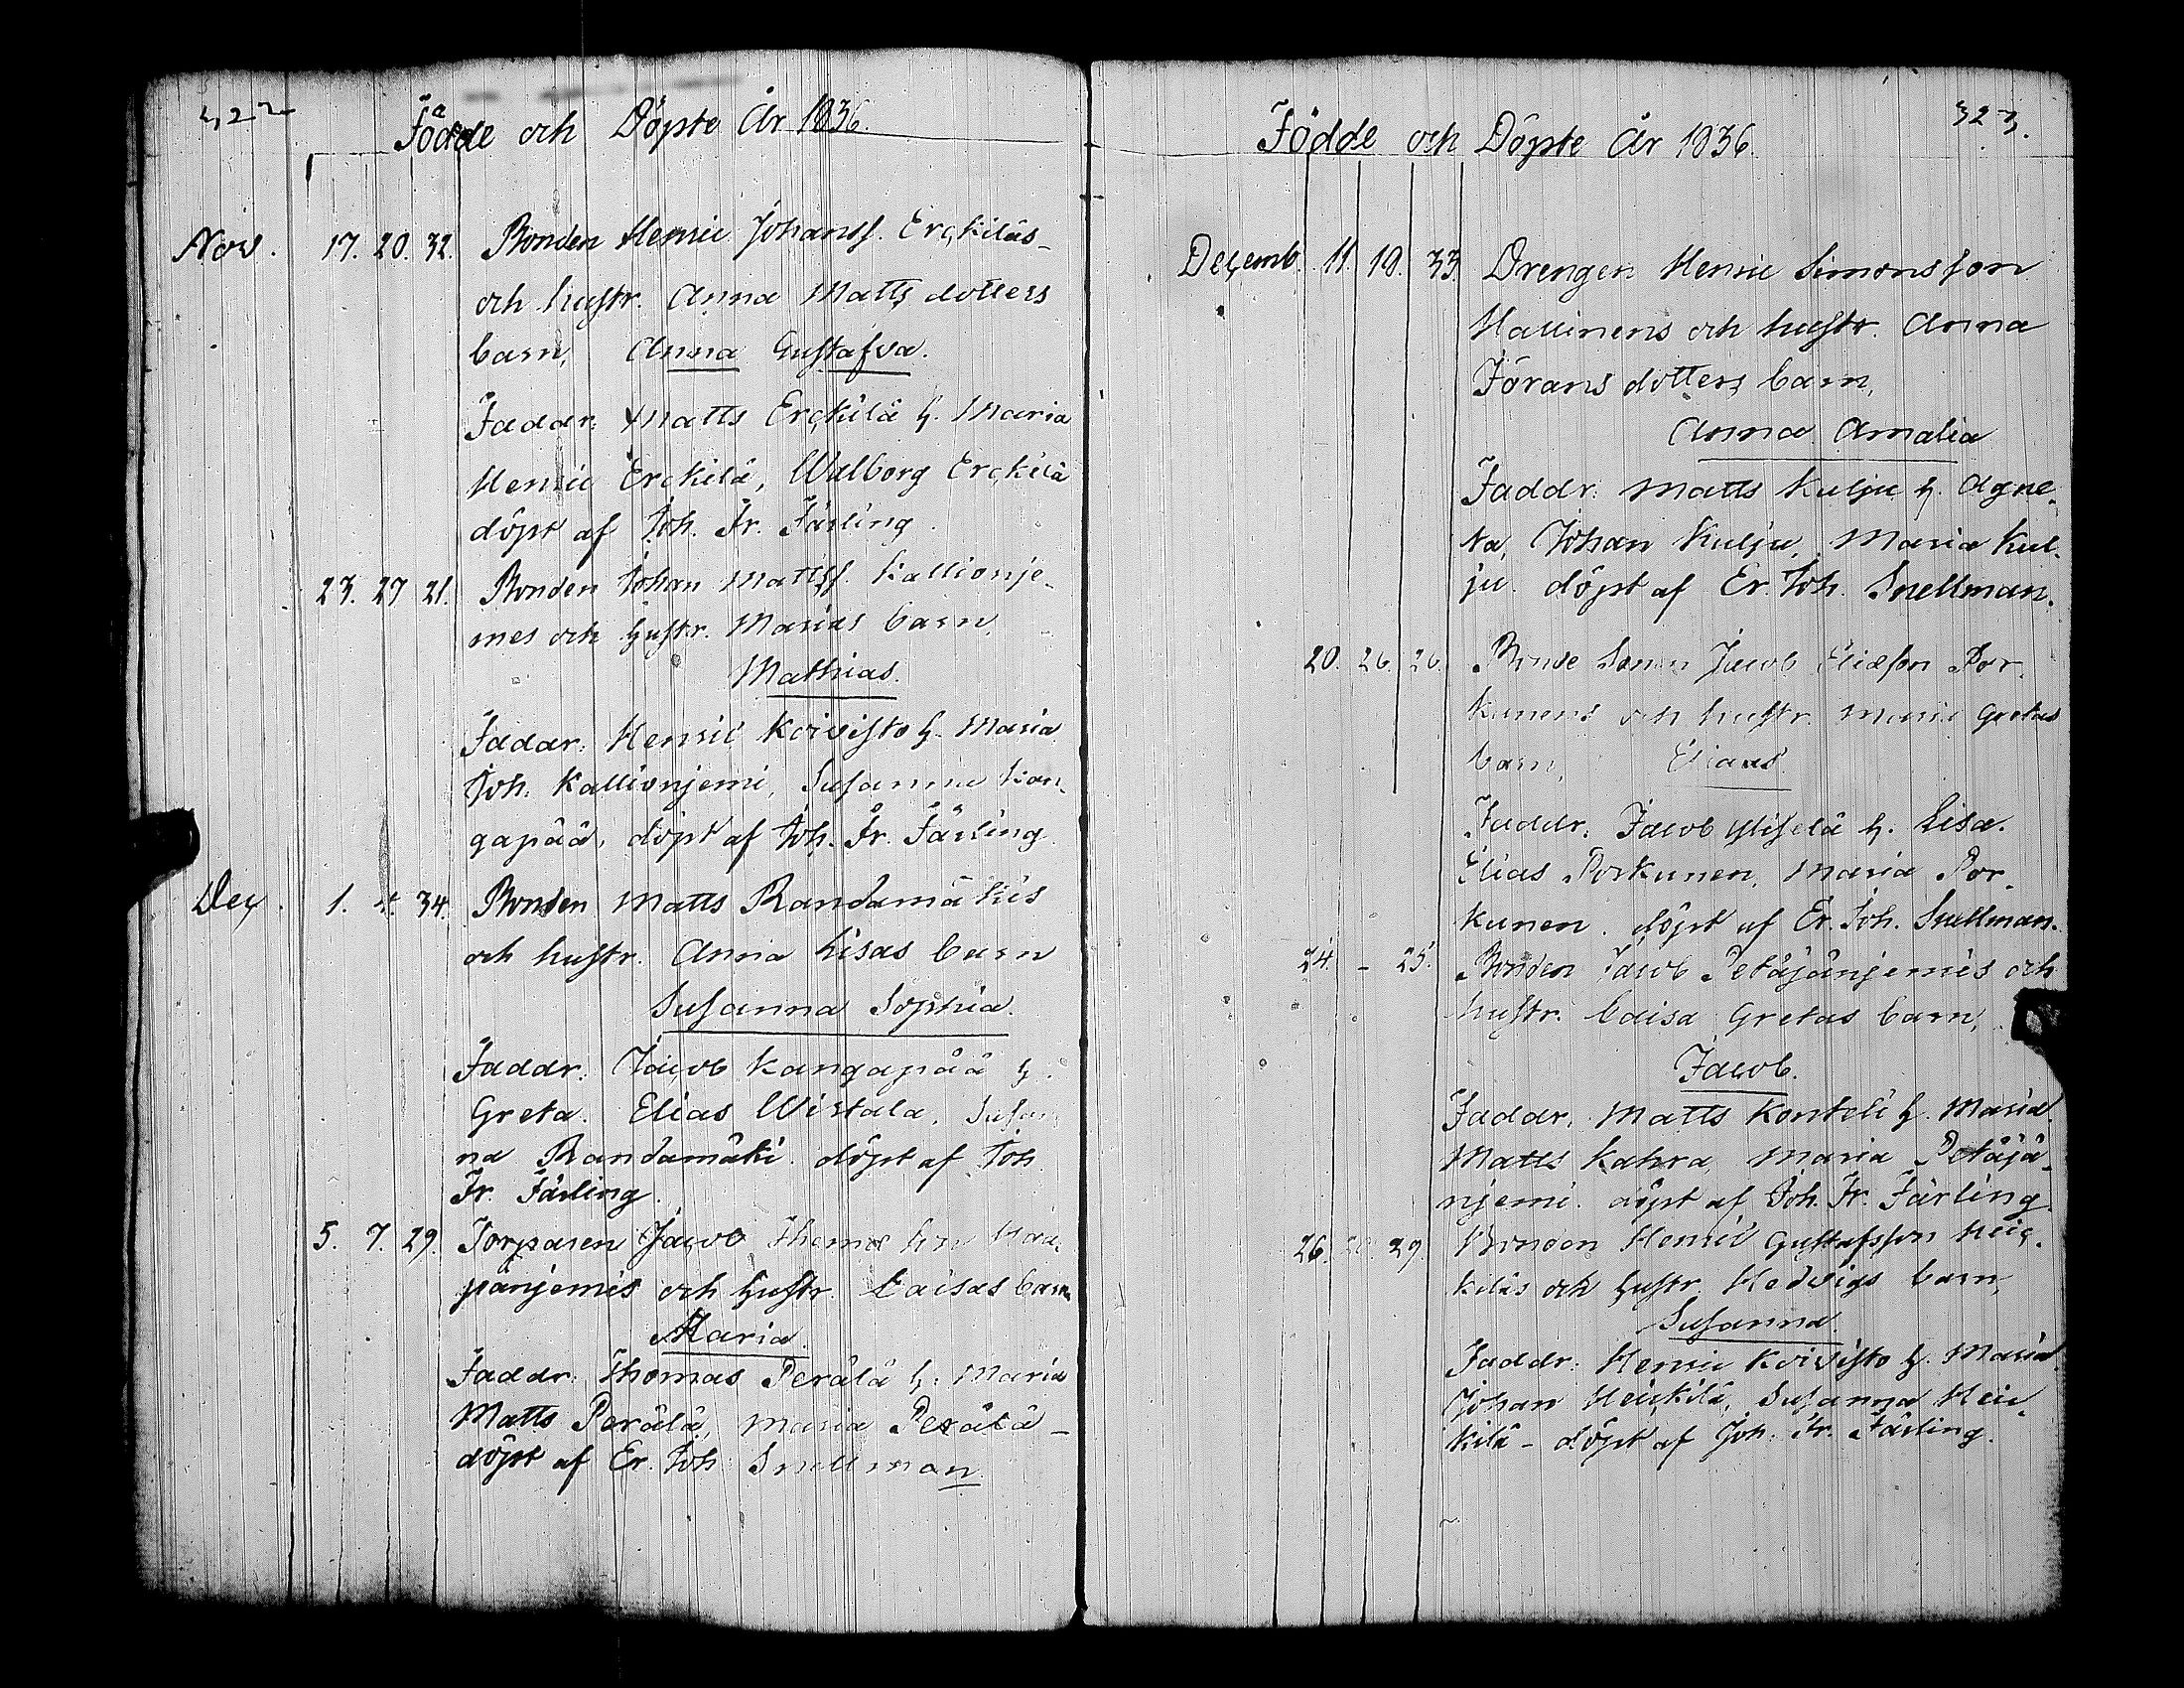 322
Födde och Döpte År 1836.
Nov. 17. 20. 32. Bonden Henric Johanss. Erckiläs-
och hustr. Anna Matts dotters
barn, Anna Gustafva.
Faddr: Matts Erckilä h. Maria
Henric Erckilä, Walborg Erckilä
döpt af Joh. Fr. Färling.
23. 27 21. Bonden Johan Matss. Kallionje-
mes och hustr. Marias barn,
Mathias.
Faddr: Henric Koivisto h. Maria
Joh. Kallionjemi, Susanna Kan-
gapää, döpt af Joh. Fr. Färling.
Dec. 1. 4. 34. Bonden Matts Randamäkis
och hustr. Anna Lisas barn
Susanna Sophia.
Faddr: Jacob Kangapää h.
Greta. Elias Wirtala, Susan
na Randamäki. döpt af Joh.
Fr. Färling.
5. 7. 29. Torparen Jacob
pänjemis och hustr. Caisas barn,
Maria.
Faddr: Thomas Perälä h. Maria
Matts Perälä, Maria Perälä-
döpt af Er. Joh. Snellman.
323.
Födde och Döpte År 1836.
Decemb. 11. 18. 33. Drengen Henric Simonsson
Hallinens och hustr. Anna
Jörans dotters barn,
Anna Amalia
Faddr: Matts Kulju h. Agne-
ta, Johan Kulju, Maria Kul-
ju. döpt af Er. Joh. Snellman.
20. 26. 26. Bonde Sonen Jacob Eliæson Por-
kunens och hustr. Maria Gretas
barn, Elias.
Faddr. Jacob h. Lisa.
Elias Porkunen, Maria Por-
kunen. döpt af Er. Joh. Snellman.
24. - 25. Bonden Jacob Petäjänjemis och
hustr. Caisa Gretas barn,
Jacob.
Faddr. Matts Konteli h. Maria.
Matts Kahra, Maria Petäjä-
njemi. döpt af Joh. Fr. Färling.
26. 29. Bonden Henric Gustafsson Heic-
kiläs och hustr. Hedvigs barn,
Susanna.
Faddr: Henric Koivisto h. Maria.
Johan Heickilä, Susanna Heic-
kilä - döpt af Joh. Fr. Färling.